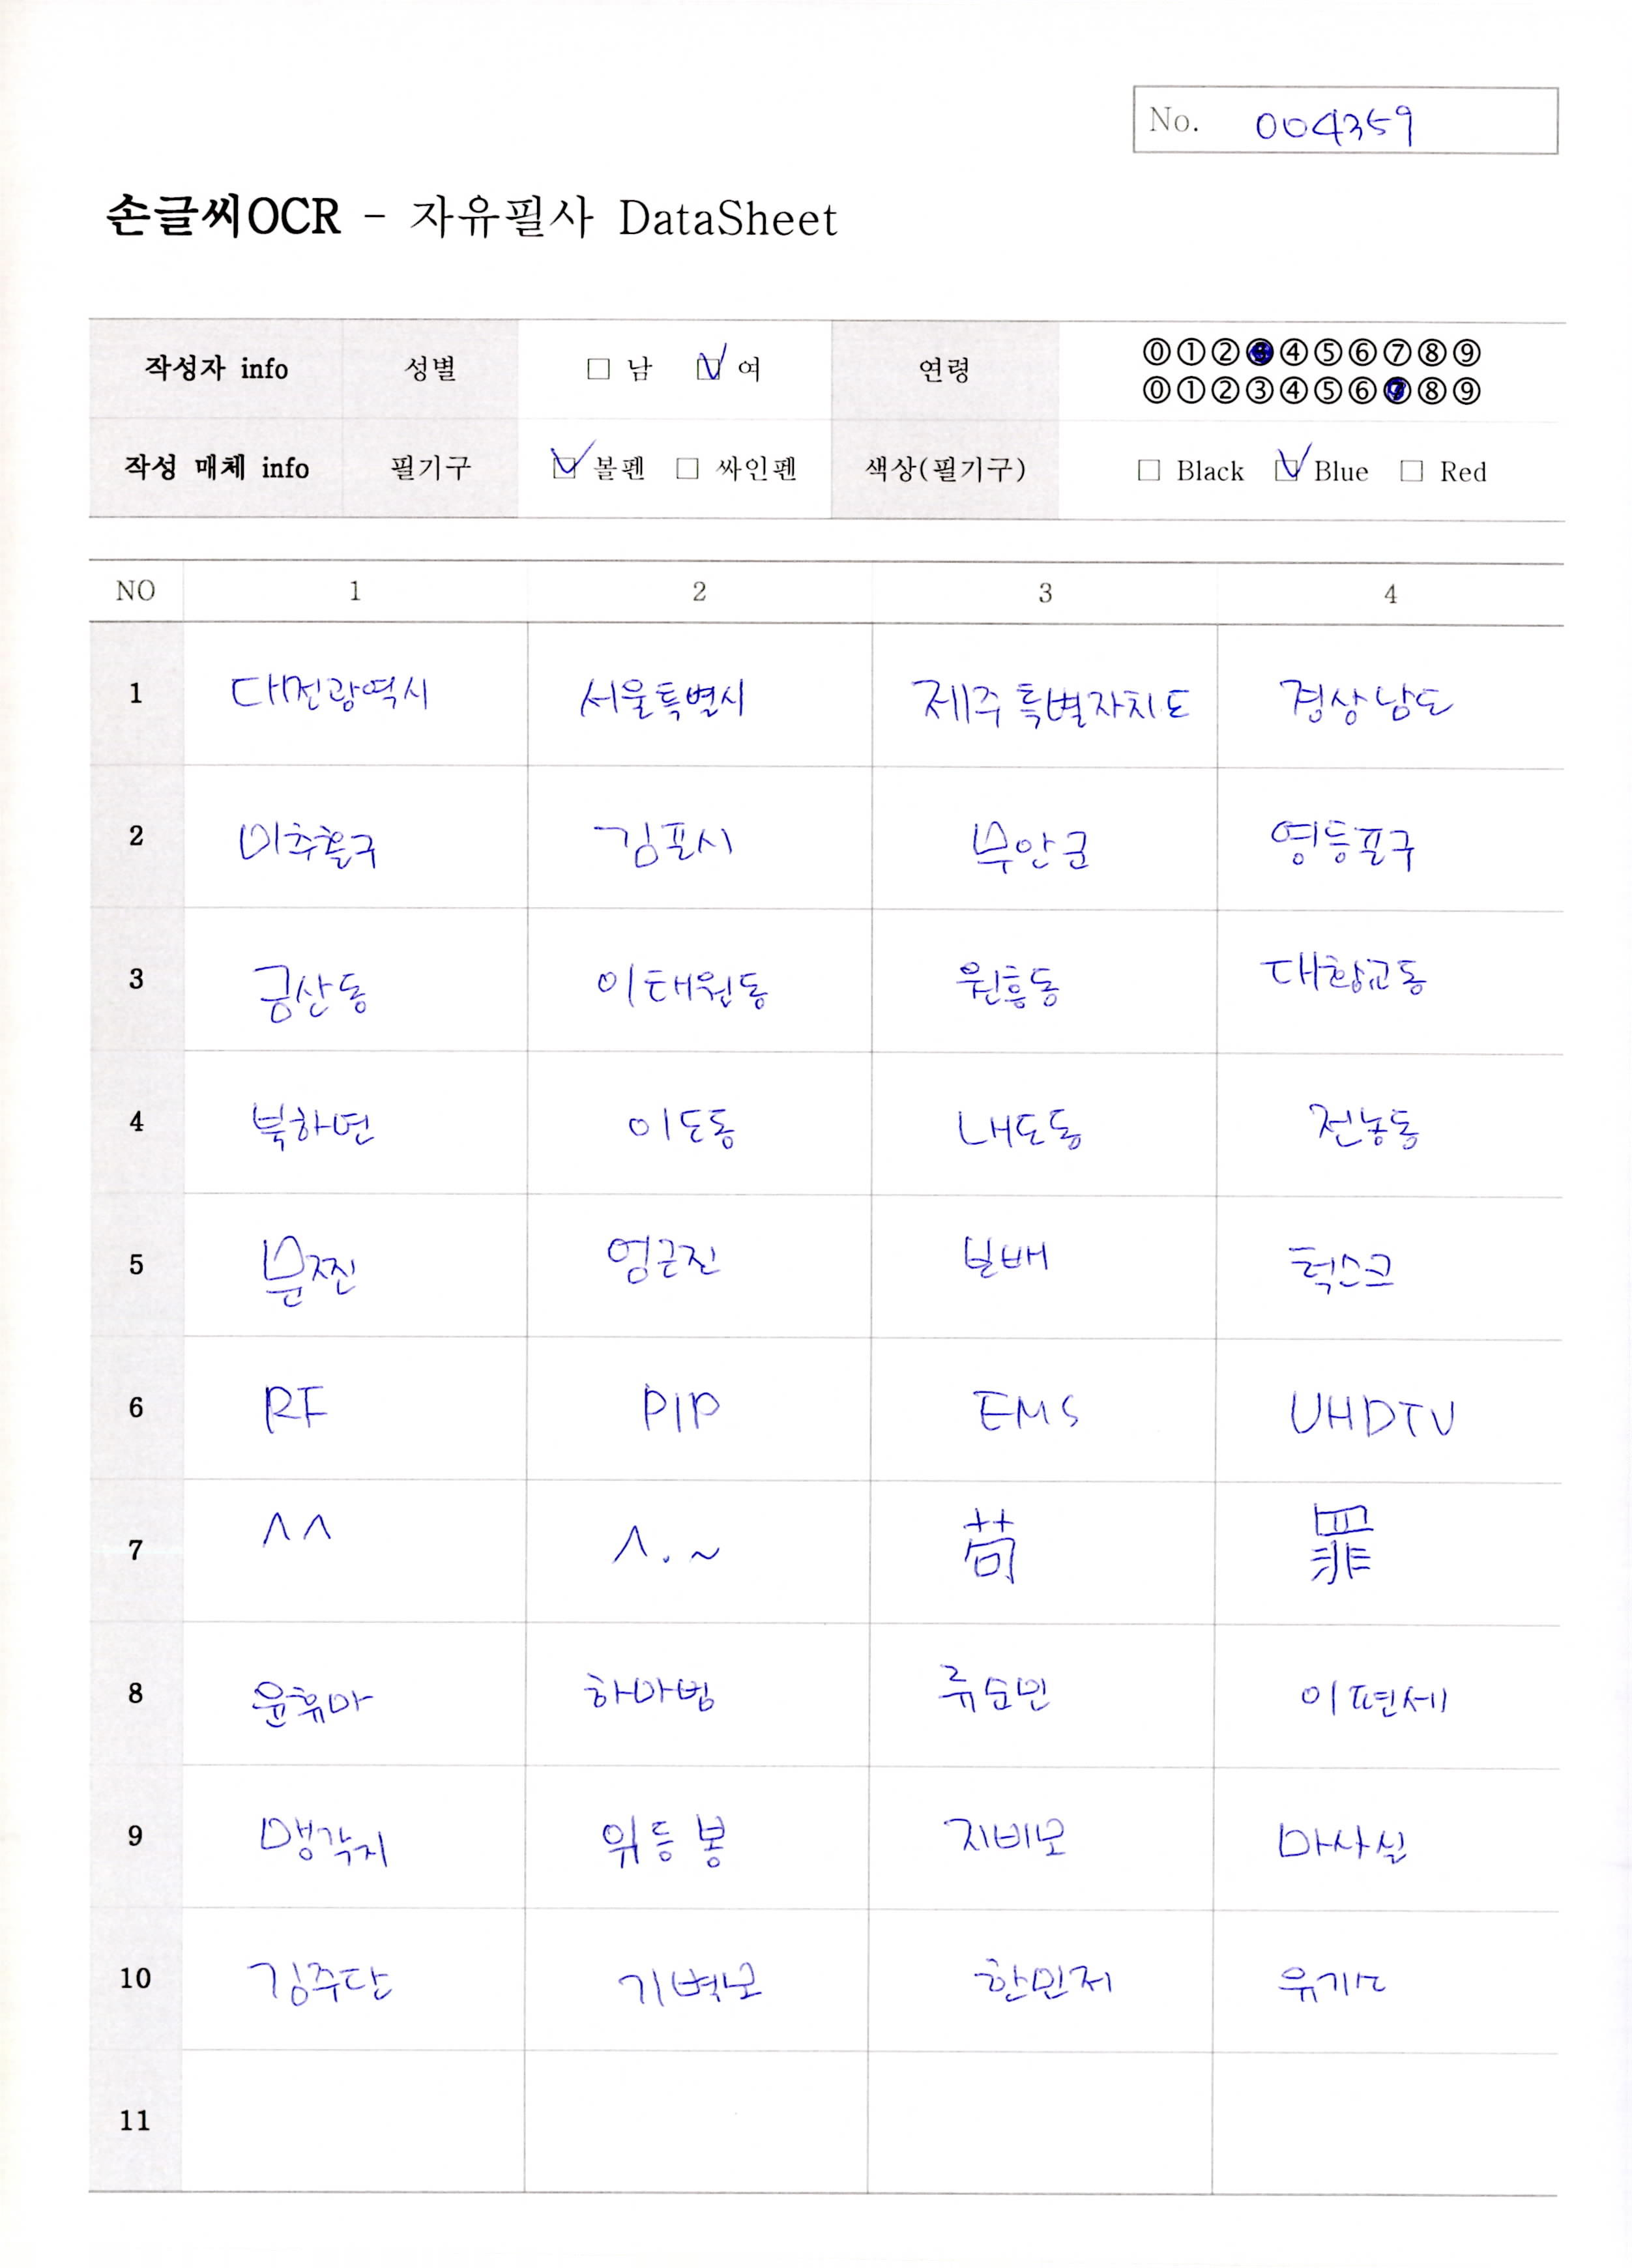 No. 004359
손글씨OCR - 자유필사 DataSheet
작성자 info 성별 □ 남 ☑ 여 연령 ⓪①②③④⑤⑥⑦⑧⑨
⓪①②③④⑤⑥⑦⑧⑨
작성 매체 info 필기구 ☑ 볼펜 □ 싸인펜 색상(필기구) □ Black ☑ Blue □ Red
NO 1 2 3 4
1 대전광역시 서울특별시 제주특별자치도 경상남도
2 미추홀구 김포시 부안군 영등포구
3 금산동 이태원동 원흥동 대황교동
4 북하면 이도동 내도동 전농동
5 분찐 엄근진 본배 헉스크
6 RF PIP EMS UHDTV
7 ^^ ^.~ 苟 罪
8 윤휴마 하마범 류순민 이떤세
9 맹각지 위등봉 지비모 마사실
10 김주단 기벽모 한민저 유기
11